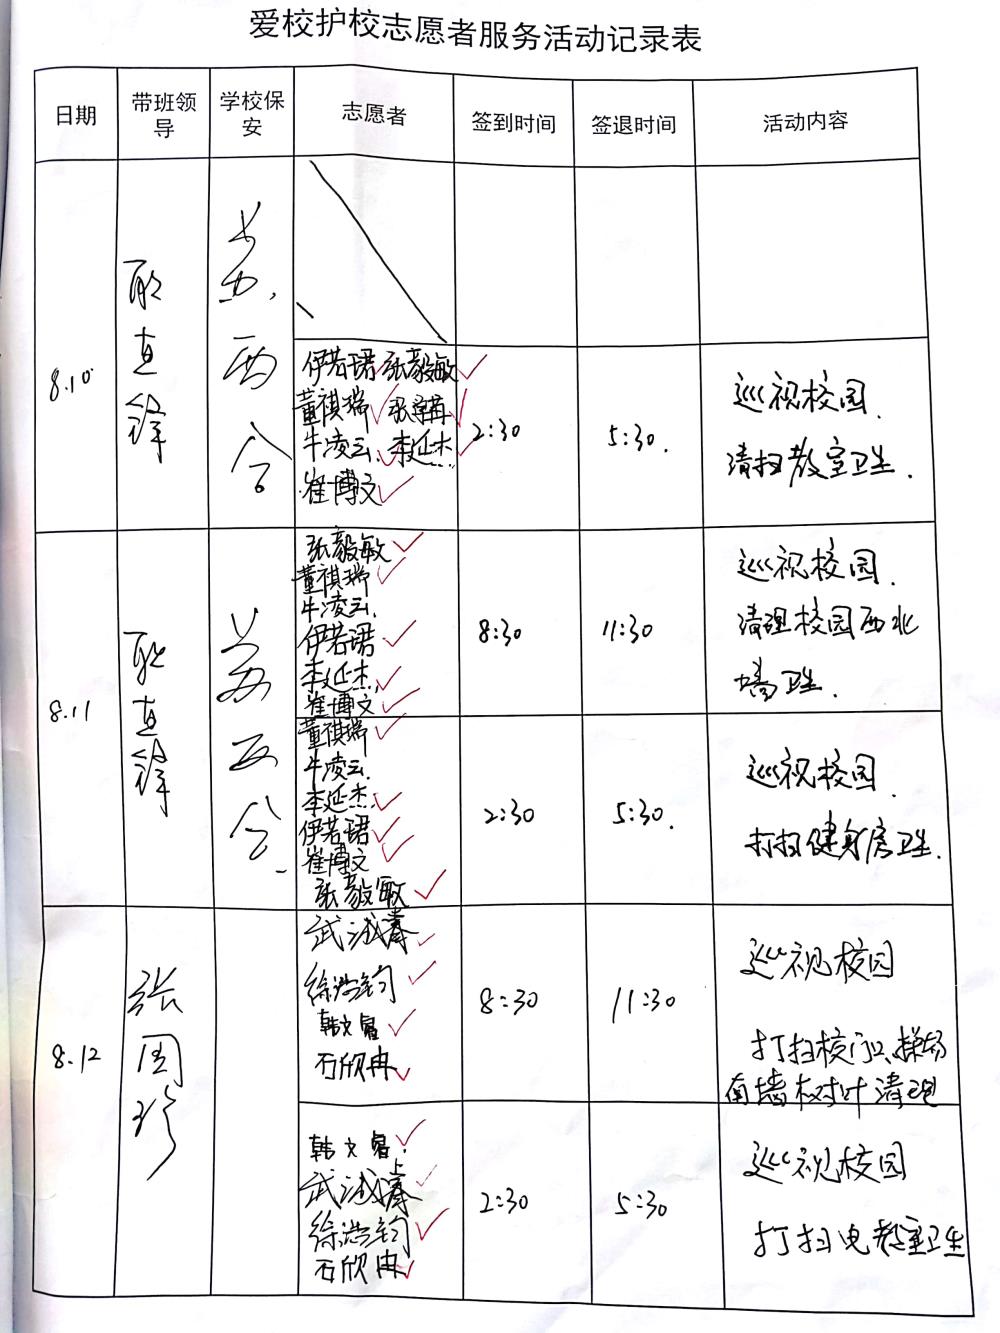 爱校护校志愿者服务活动记录表
日期 带班领导 学校保安 志愿者 签到时间 签退时间 活动内容
8.10
伊若珺 张毅敏
董祺瑞
牛凌云 李延杰
崔博文
2:30 5:30.
巡视校园.
清扫教室卫生.
8.11
张毅敏
董祺瑞
牛凌云.
伊若珺
李延杰
崔博文
8:30 11:30
巡视校园.
清理校园西北
墙卫生.
董祺瑞
牛凌云.
李延杰
伊若珺
崔博文
张毅敏
2:30 5:30.
巡视校园.
打扫健身房卫生.
8.12
张周珍
徐浩钧
韩文睿
石欣冉
8:30 11:30
巡视校园
打扫校门口、操场
南墙树叶清理
韩文睿.
徐浩钧
石欣冉
2:30 5:30
巡视校园
打扫电教室卫生